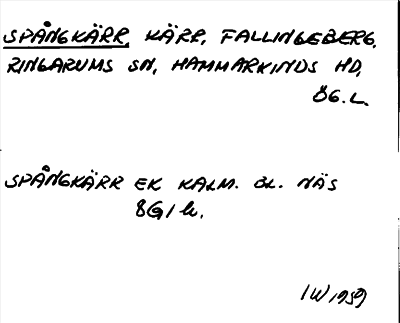 SPÅNGKÄRR, KÄRR, FALLINGEBERG,
RINGARUMS SN, HAMMARKINDS HD,
ÖG. L.
SPÅNGKÄRR EK KALM. BL. NÄS
8G/h.
IW 1959